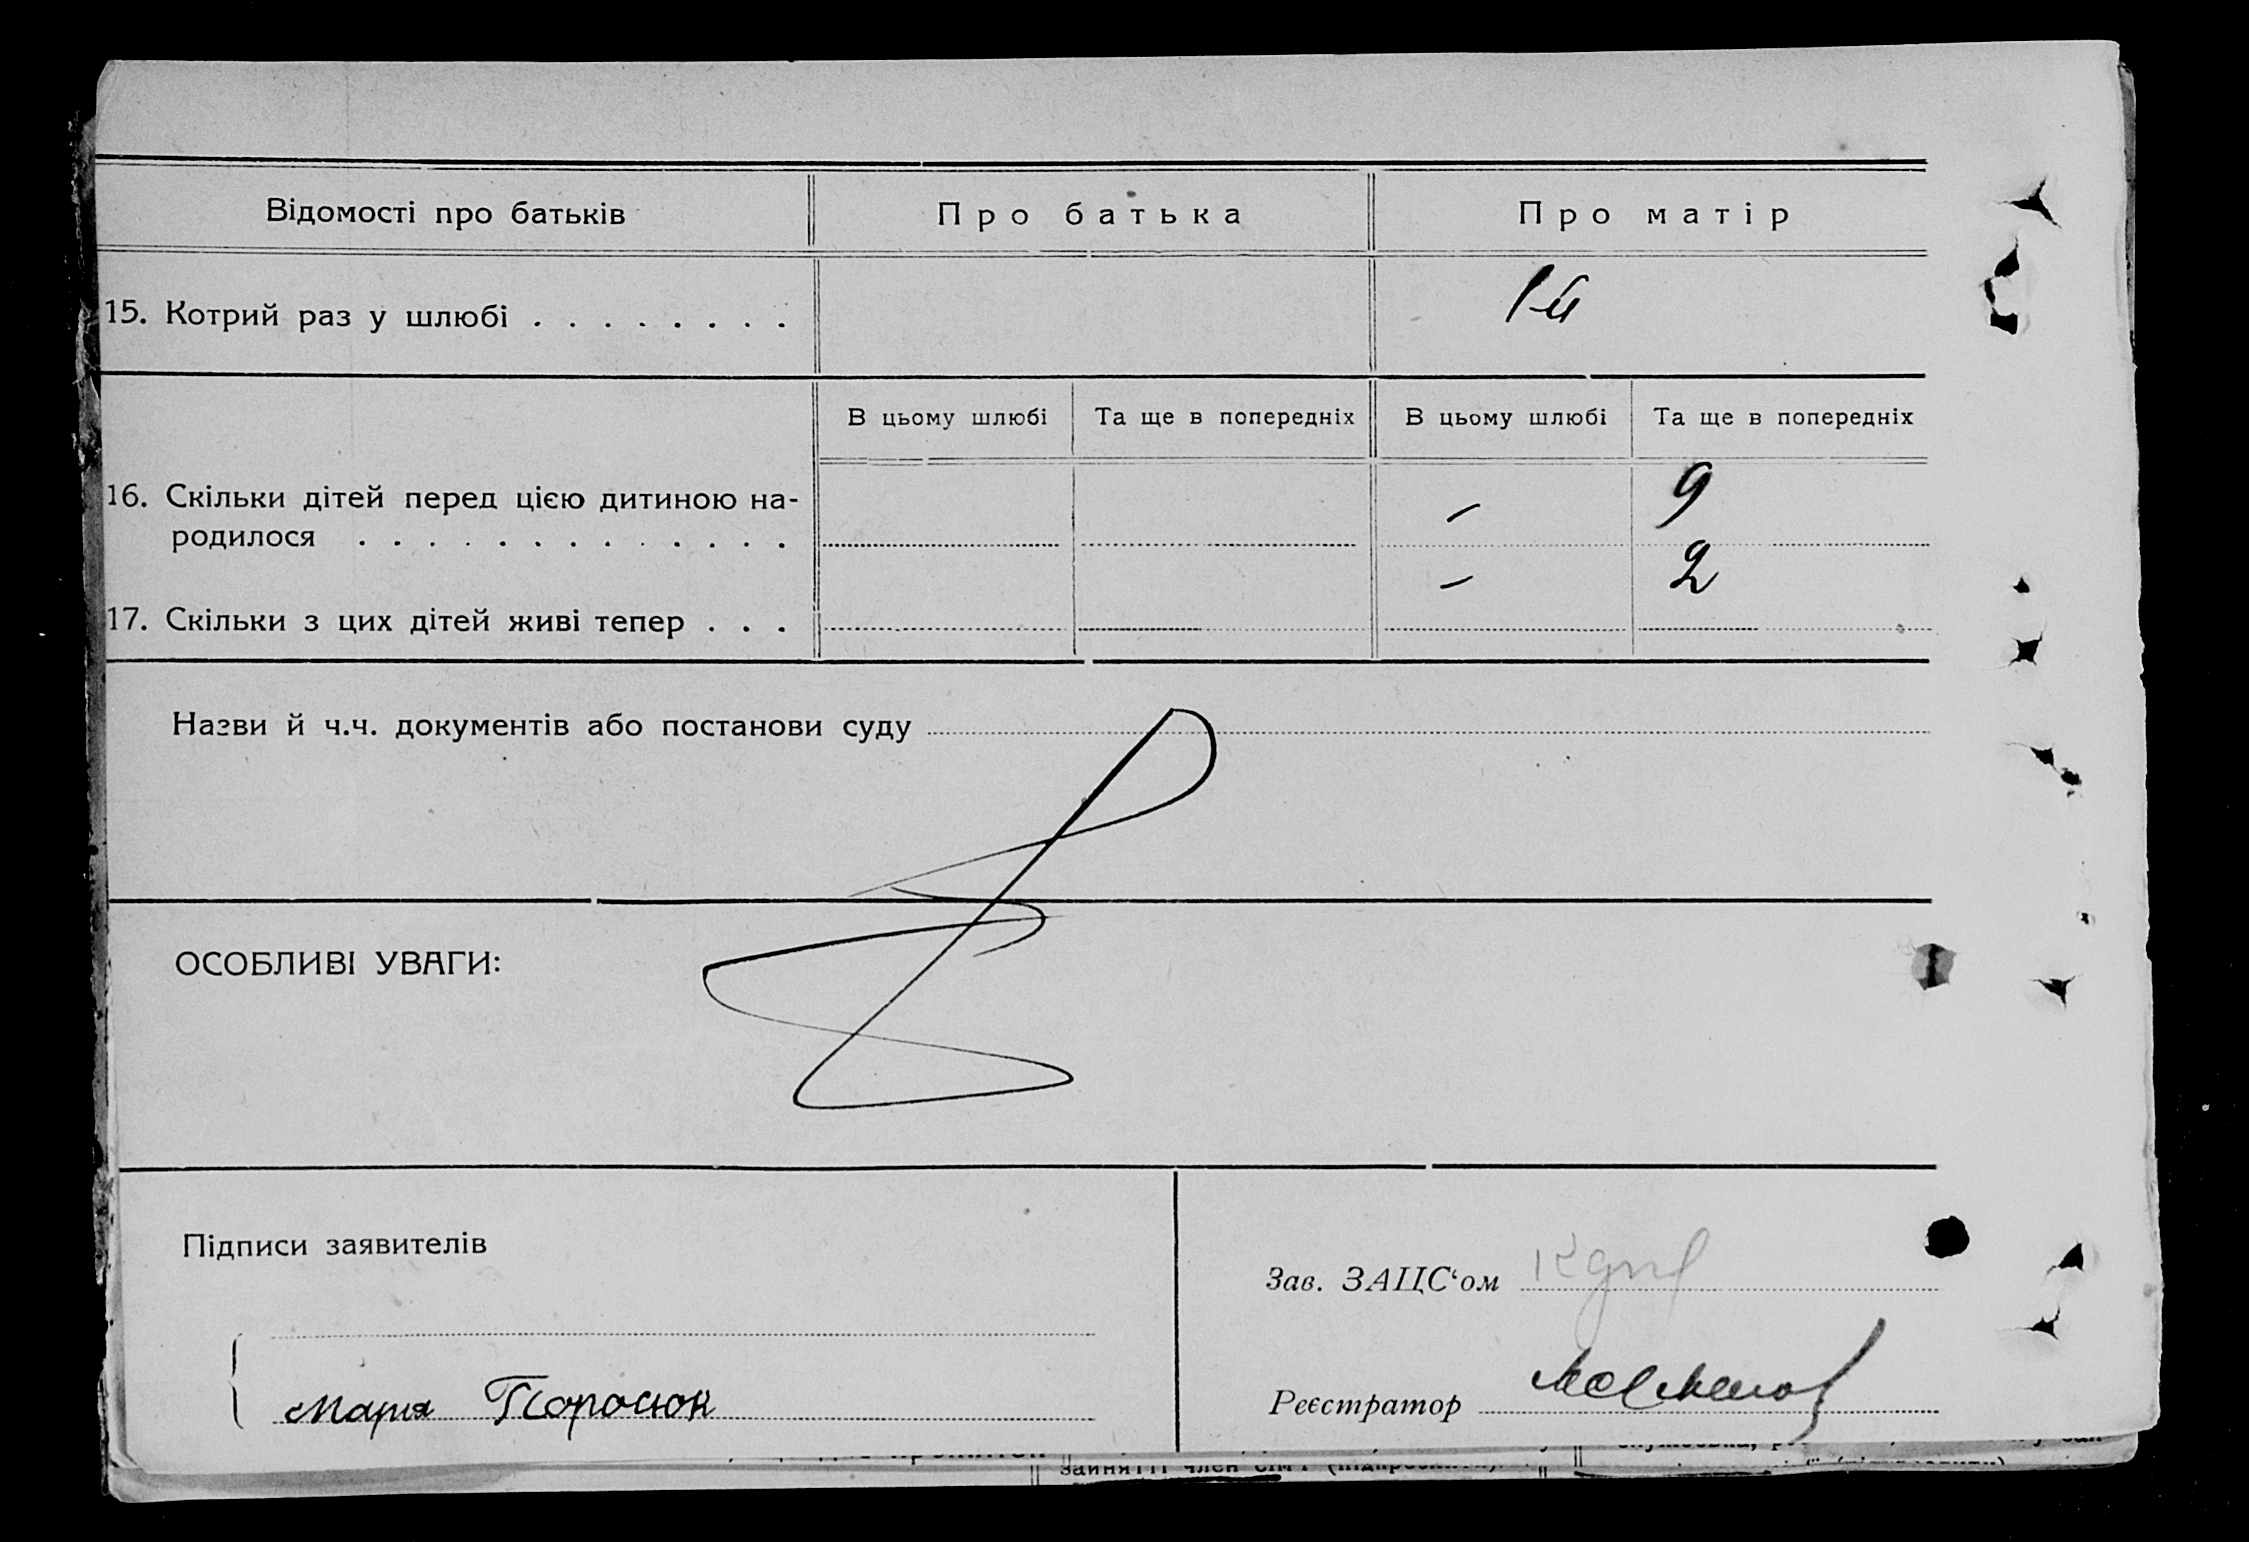 Відомості про батьків
Про батька
Про матір
15. Котрий раз у шлюбі . . . . . . . .
1-й
В цьому шлюбі
Та ще в попередніх
В цьому шлюбі
Та ще в попередніх
16. Скільки дітей перед цією дитиною на-
родилося . . . . . . . . . . . . .
–
9
17. Скільки з цих дітей живі тепер . . .
–
2
Назви й ч.ч. документів або постанови суду
ОСОБЛИВІ УВАГИ:
Підписи заявителів
Мария Поросюк
Зав. ЗАЦС‘ом
Реєстратор